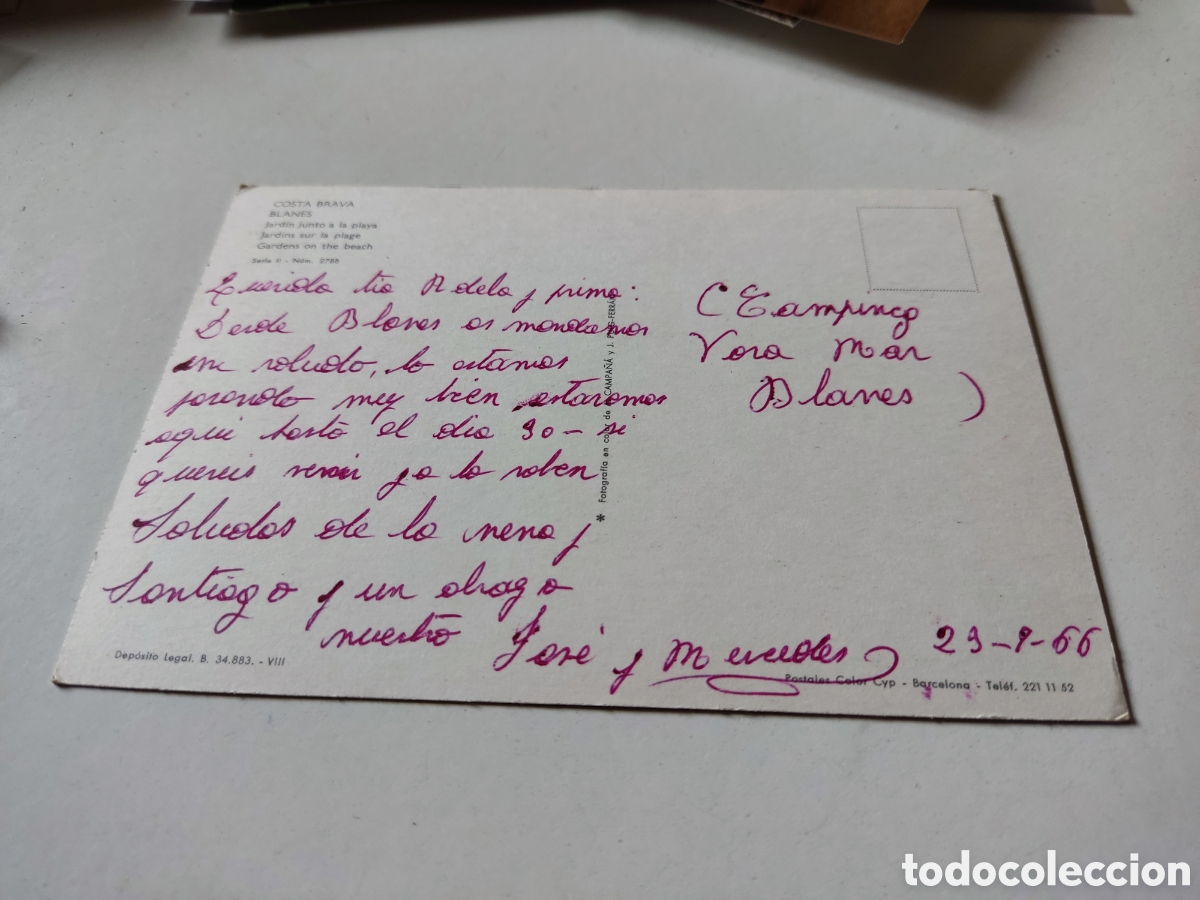 COSTA BRAVA
BLANES
Jardín junto a la playa
Jardins sur la plage
Gardens on the beach
Serie - Núm. 2788
Querida tia Adela y primo:
Desde Blanes os mandamos
un saludo, lo estamos
pasando muy bien estaremos
aqui hasta el dia 30 - si
quereis venir ya lo saben
Saludos de la nena y
Santiago y un abrazo
nuestro José y Mercedes
(Camping
Vora Mar
Blanes )
* Fotografía en color de CAMPAÑÁ y J. PUIG-FERRÁN
23 - - 66
Depósito Legal. B. 34.883. - VIII
Postales Color Cyp - Barcelona - Teléf. 221 11 52
todocoleccion